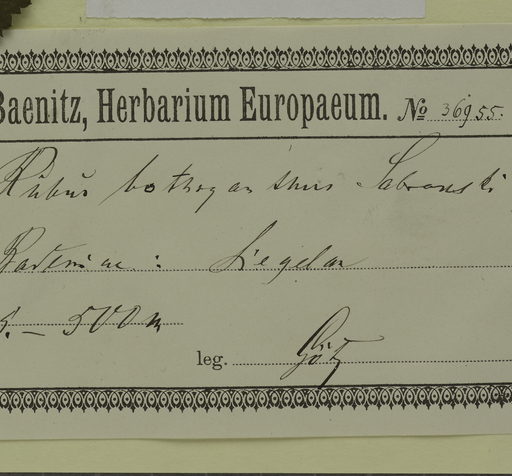 Baenitz, Herbarium Europaeum. No 36955.
Rubus bothryanthus Sabranski
Badeniae: Siegelau
s. – 500 m
leg. Götz